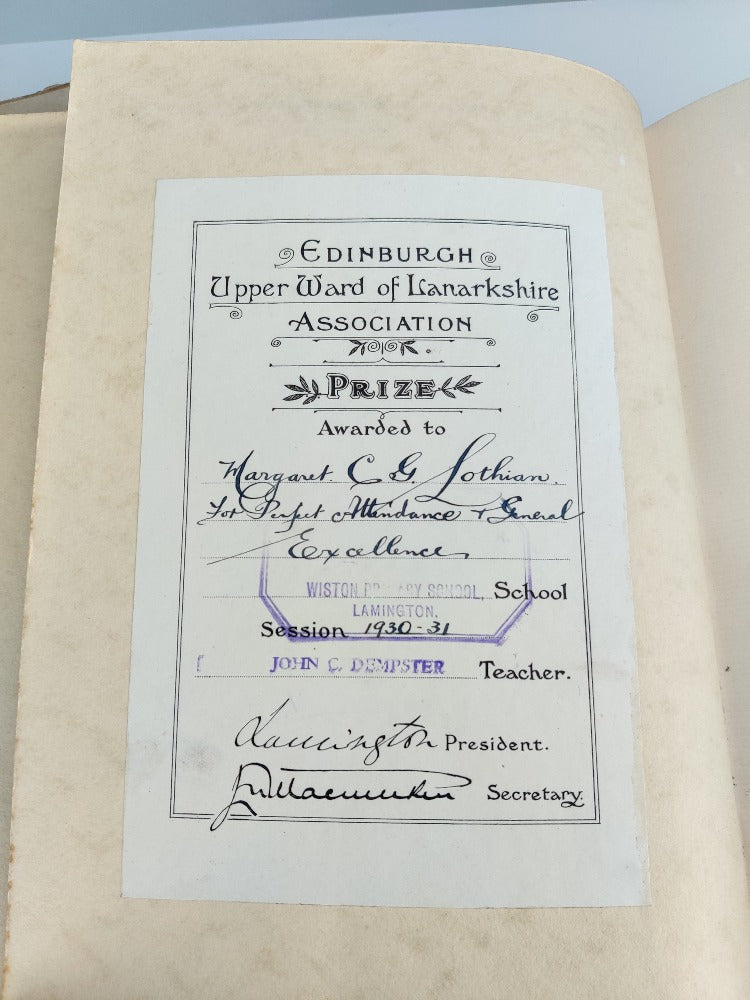 EDINBURGH
Upper Ward of Lanarkshire
ASSOCIATION
PRIZE
Awarded to
Margaret C G Lothian.
For Perfect Attendance & General
Excellence
WISTON PRIMARY SCHOOL, School
LAMINGTON,
Session 1930-31
JOHN C. DEMPSTER Teacher.
Lamington President.
Secretary.